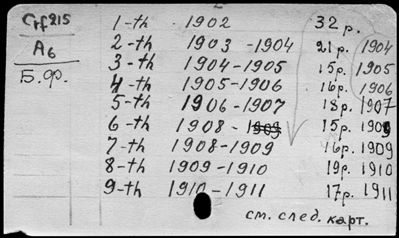 Crf 215 1-th 1902 32 р.
A6 2-th 1903 - 1904 21 р. 1904
Б.Ф. 3-th 1904 - 1905 15 р. 1905
4-th 1905 - 1906 16 р. 1906
5-th 1906 - 1907 18 р. 1907
6-th 1908 - 1909 15 р. 1909
7-th 1908 - 1909 16 р. 1909
8-th 1909 - 1910 19 р. 1910
9-th 1910 - 1911 17 р. 1911
см. след. карт.